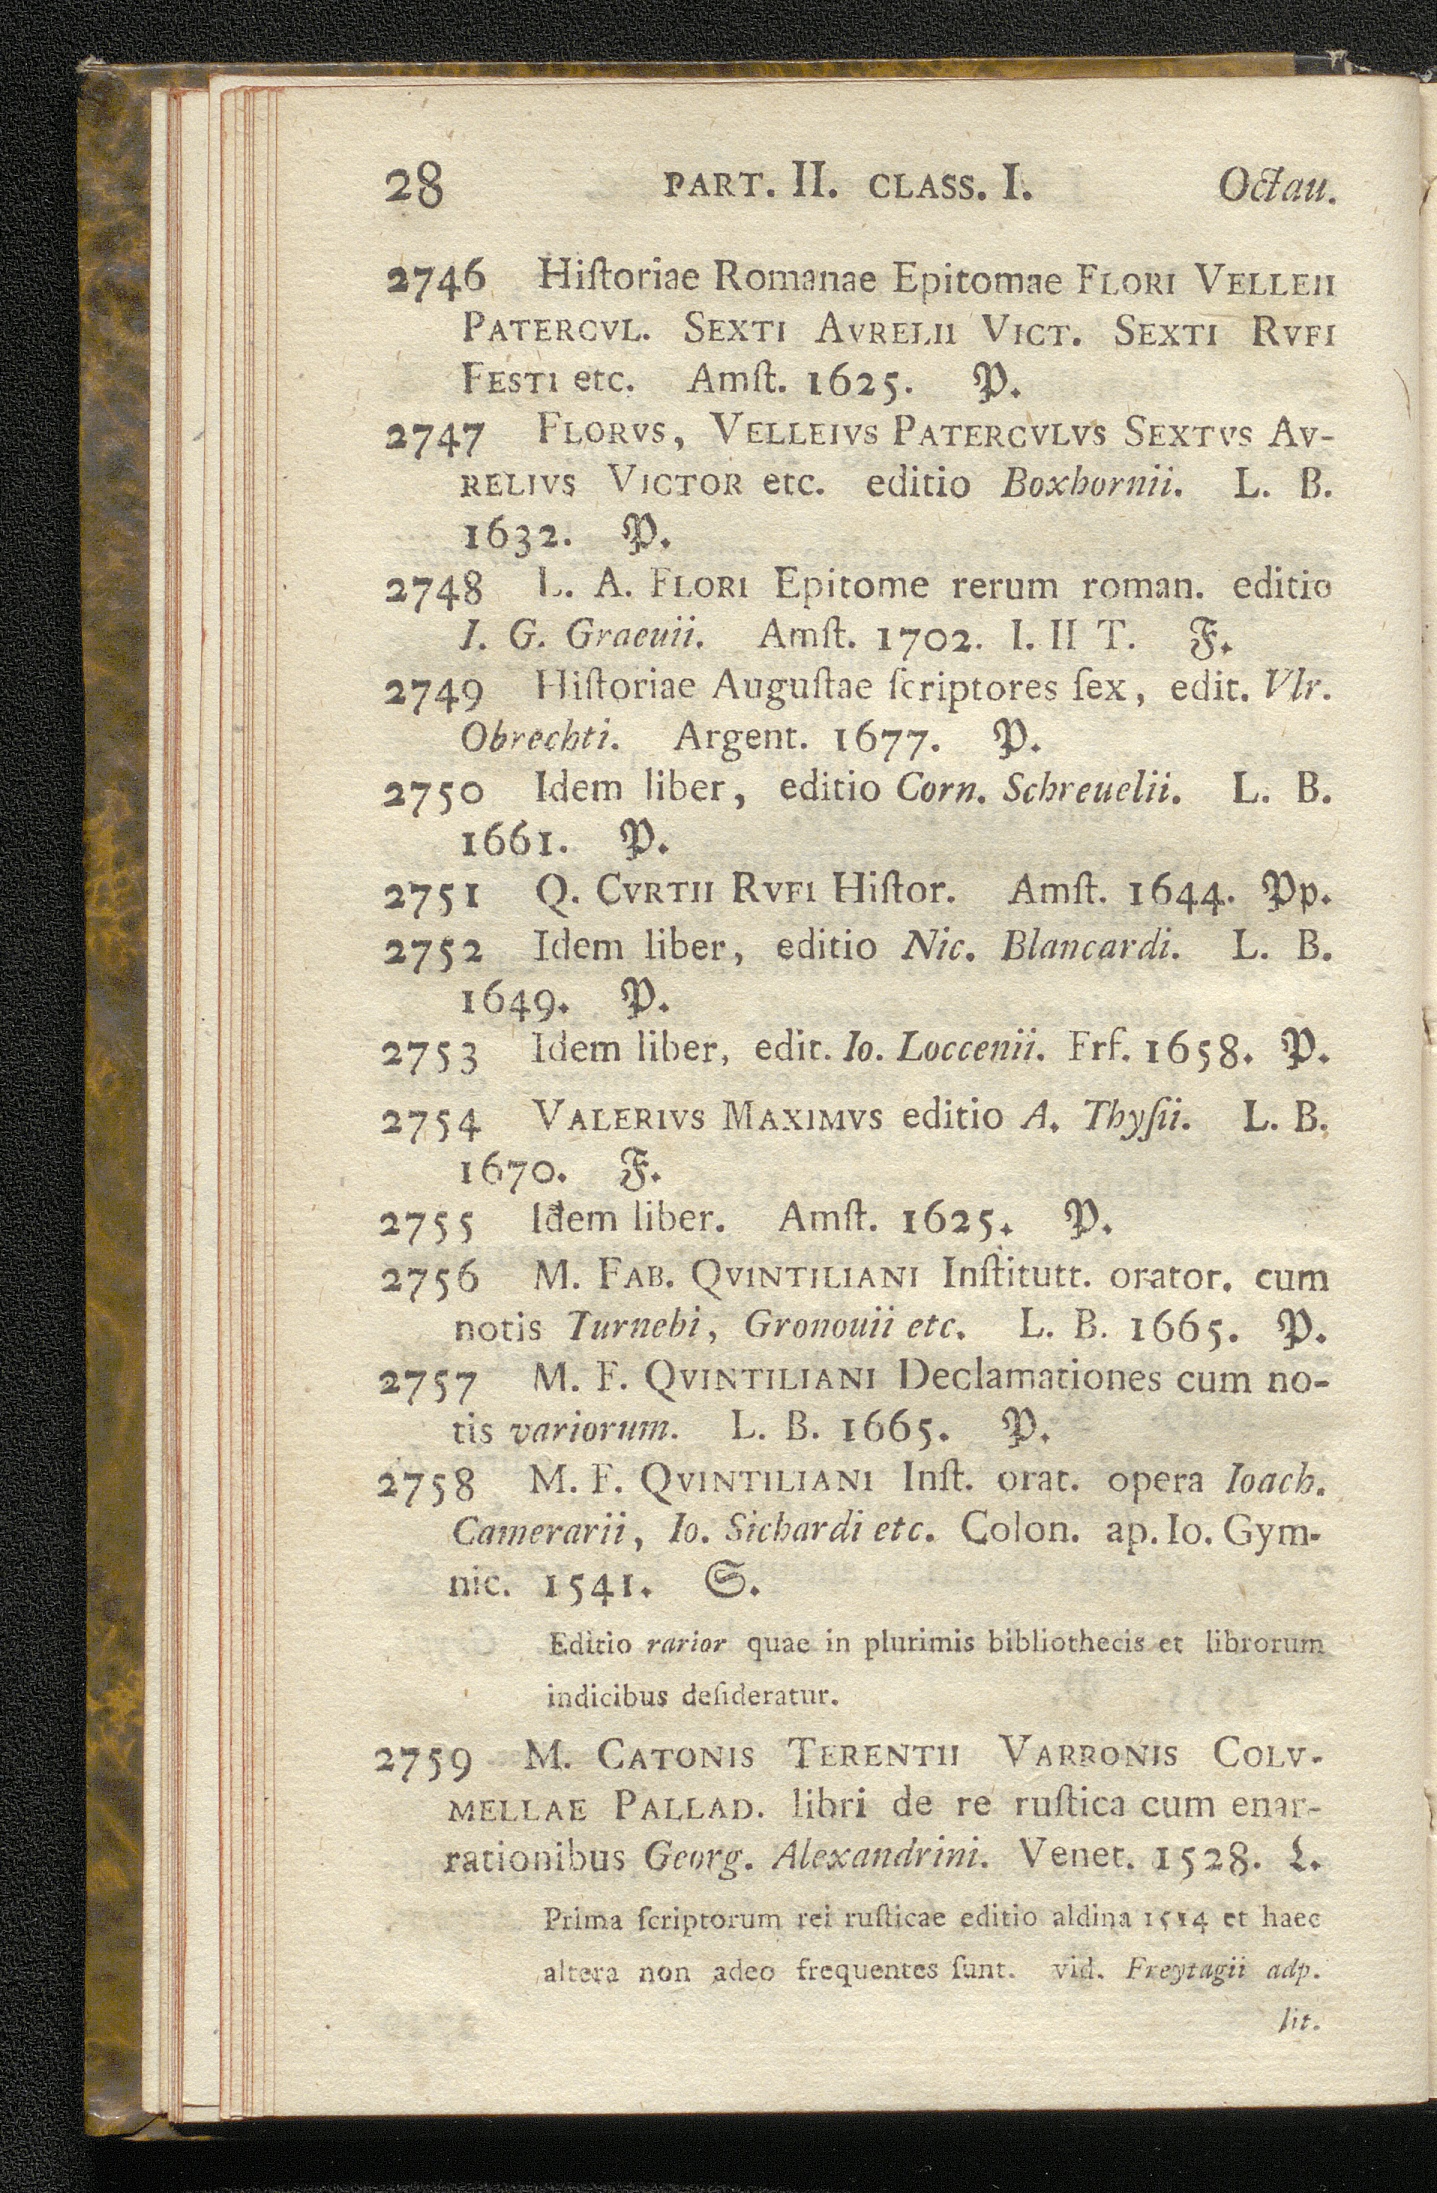 28 PART. II. CLASS. I. Octau.
2746 Hiſtoriae Romanae Epitomae FLORI VELLEII
PATERCVL. SEXTI AVRELII VICT. SEXTI RVFI
FESTI etc. Amſt. 1625. P.
2747 FLORVS, VELLEIVS PATERCVLVS SEXTVS AV-
RELIVS VICTOR etc. editio Boxhornii. L. B.
1632. P.
2748 L. A. FLORI Epitome rerum roman. editio
I. G. Graeuii. Amſt. 1702. I. II T. F.
2749 Hiſtoriae Auguſtae ſcriptores ſex, edit. Vlr.
Obrechti. Argent. 1677. P.
2750 Idem liber, editio Corn. Schreuelii. L. B.
1661. P.
2751 Q. CVRTII RVFI Hiſtor. Amſt. 1644. Pp.
2752 Idem liber, editio Nic. Blancardi. L. B.
1649. P.
2753 Idem liber, edit. Io. Loccenii. Frf. 1658. P.
2754 VALERIVS MAXIMVS editio A. Thyſii. L. B.
1670. F.
2755 Idem liber. Amſt. 1625. P.
2756 M. FAB. QVINTILIANI Inſtitutt. orator. cum
notis Turnebi, Gronouii etc. L. B. 1665. P.
2757 M. F. QVINTILIANI Declamationes cum no-
tis variorum. L. B. 1665. P.
2758 M. F. QVINTILIANI Inſt. orat. opera Ioach.
Camerarii, Io. Sichardi etc. Colon. ap. Io. Gym-
nic. 1541. S.
Editio rarior quae in plurimis bibliothecis et librorum
indicibus deſideratur.
2759 M. CATONIS TERENTII VARRONIS COLV-
MELLAE PALLAD. libri de re ruſtica cum enar-
rationibus Georg. Alexandrini. Venet. 1528. L.
Prima ſcriptorum rei ruſticae editio aldina 1514 et haec
altera non adeo frequentes ſunt. vid. Freytagii adp.
lit.